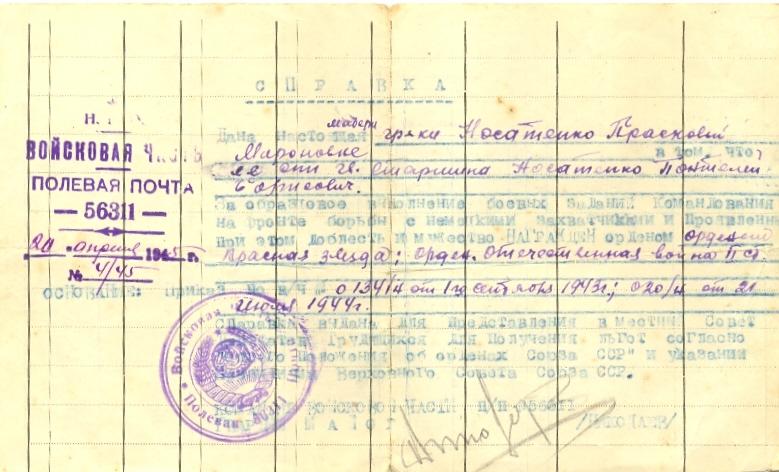 СПРАВКА
Н.
ВОЙСКОВАЯ ЧАСТЬ
ПОЛЕВАЯ ПОЧТА
— 56311 —
20 апреля 1945 г.
№ 4/45
матери
Дана настоящая гр-ки Носатенко Прасковьи
Мароновне в том, что
ее сын гв. старшина Носатенко Пантелей
Борисович.
За образцовое выполнение боевых заданий Командования
на фронте борьбы с немецкими захватчиками и Проявленные
При этом доблесть и мужество НАГРАЖДЕН орденом
Красная звезда; Орден. Отечественная война II ст.
ОСНОВАНИЕ: Приказ по в/ч № 0134/4 от 1го сентября 1943г; 020/4 от 21
Июля 1944г.
СПРАВКА выдана для Представления в местный Совет
Трудящихся для Получения льгот согласно
Положения об орденах Союза ССР" и указании
Верховного Совета Союза ССР.
ВОЙСКОВОЙ ЧАСТИ П/П № 56311
/НИКОЛАЕВ/
Войсковая
Полевая 56311